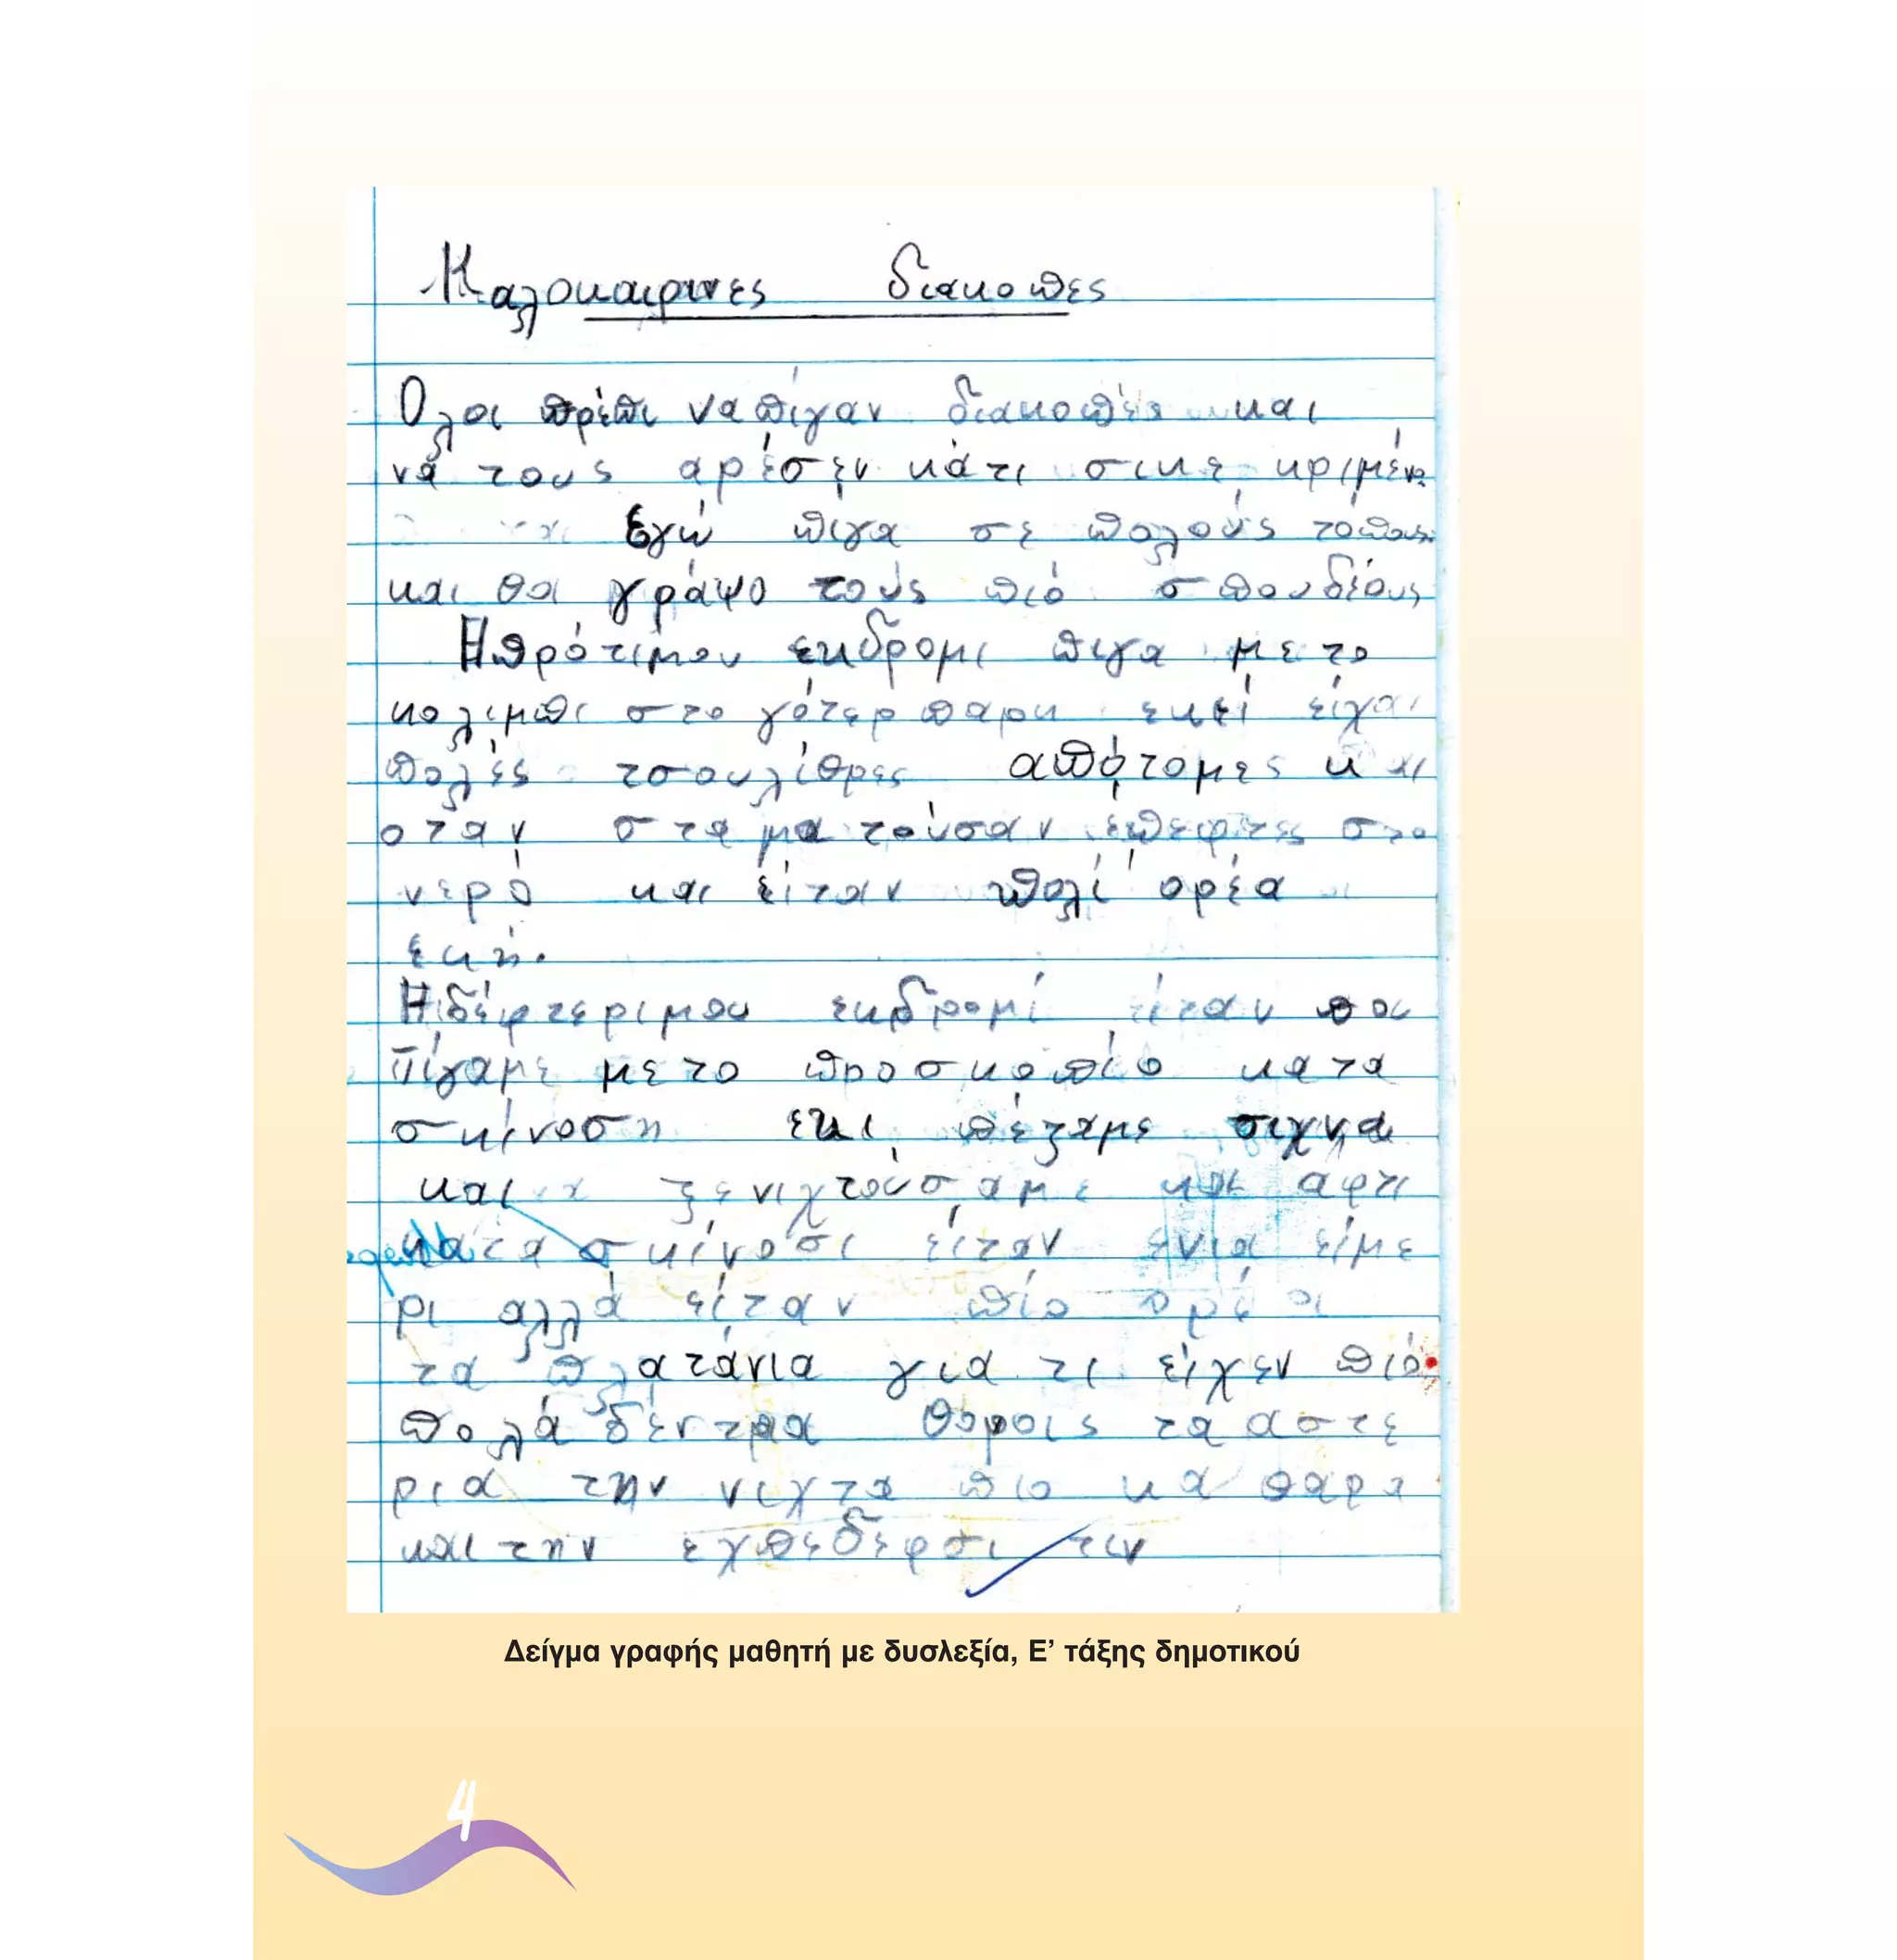 Καλοκαιρινες διακοπες
Ολοι πρέπι ναπίγαν διακοπές και
νά τους αρέσεν κάτι σικε κριμένα
Εγώ πιγα σε πολούς τόπους
και θα γράψο τούς πιό σπουδέους
Ηπρότιμου εκδρομι πιγα με το
κολιμπι στο γότερ παρκ εκεί είχαι
πολές τσουλίθρες απότομες και
οταν σταματούσαν έπεφτες στο
νερό και είταν πολί ορέα
εκή.
Ηδέφτεριμου εκδρομί είταν που
πίγαμε με το προσκοπίο κατα
σκίνοση εκι πέζαμε σιχνα
και ξενιχτούσαμε και αφτι
κατα σκίνοσι είταν ενια είμε
ρι αλλά είταν πίο ορέοι
τα πλατάνια για τι είχεν πιό
πολά δέντρα θορούς τα αστέ
ρια την νιχτα πιο καθαρα
και την εχπεδεφσι τιν
Δείγμα γραφής μαθητή με δυσλεξία, Ε’ τάξης δημοτικού
4